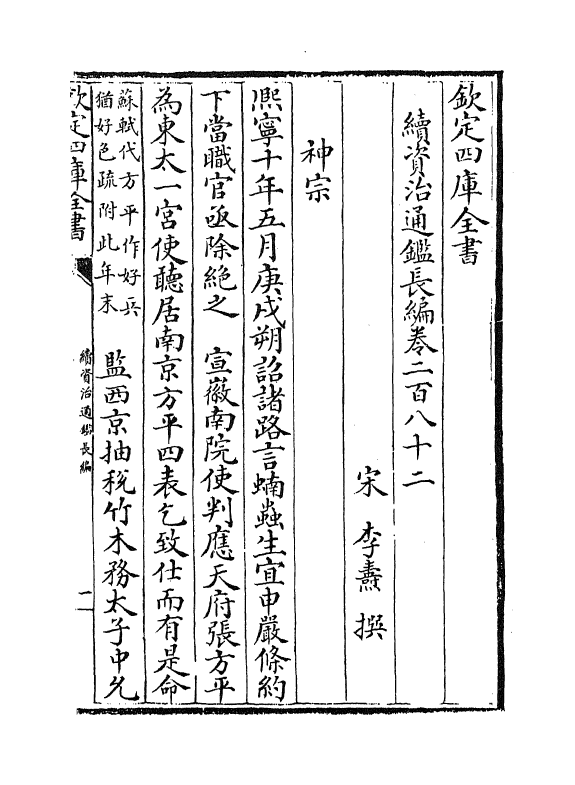 欽定四庫全書
續資治通鑑長編卷二百八十二
宋 李燾 撰
神宗
熙寧十年五月庚戌朔詔諸路言蝻蟲生宜申嚴條約
下當職官亟除絶之 宣徽南院使判應天府張方平
為東太一宮使聽居南京方平四表乞致仕而有是命
蘇軾代方平作好兵
猶好色疏附此年末
監西京抽稅竹木務太子中允
欽定四庫全書
續資治通鑑長編
一